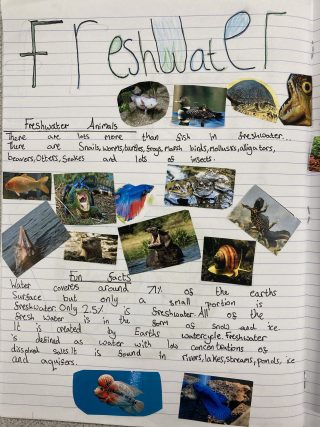 Freshwater
Freshwater Animals
There are lots more than fish in freshwater.
There are Snails, worms, turtles, frogs, marsh birds, mollusks, alligators,
beavers, Otters, Snakes and lots of insects.
Fun facts
Water coveres around 71% of the earths
Surface but only a small portion is
freshwater. Only 2.5% is freshwater. All of the
fresh water is in the form of snow and ice.
It is created by Earths watercycle. Freshwater
is defined as water with low concentrations of
disolved salts. It is found in rivers, lakes, streams, ponds, ice
and aquifers.